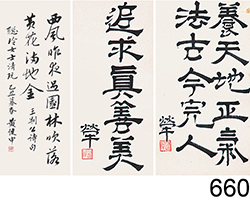 養天地正氣
法古今完人
追求真善美
西風昨夜過園林吹落
黃花滿地金 王荊公詩句
女士清玩 乙丑暮春
660